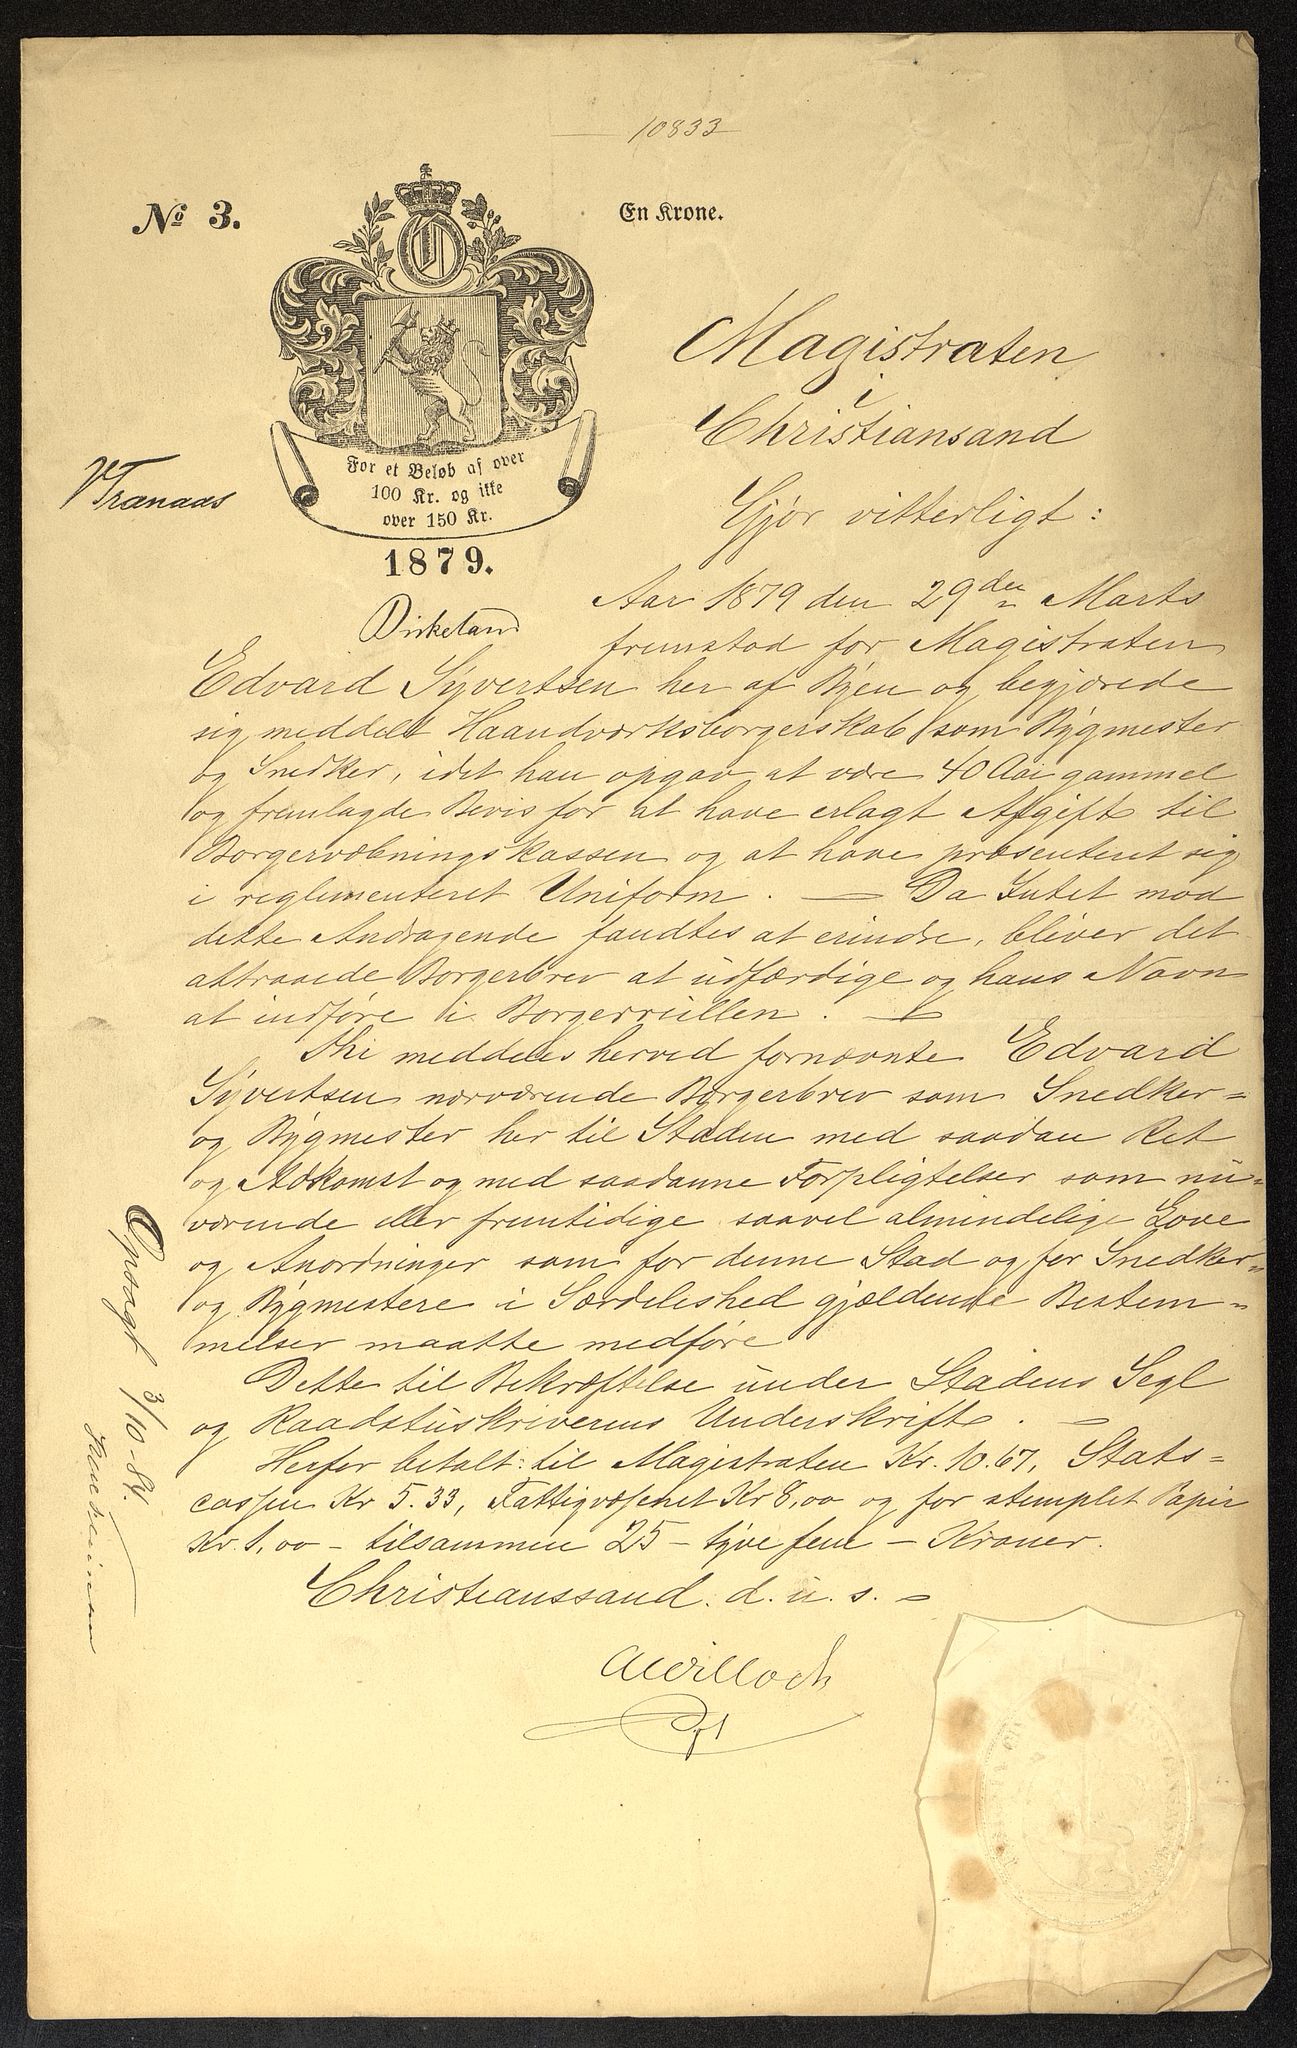 10833
No 3.
En Krone.
For et Beløb af over
100 Kr. og ikke
over 150 Kr.
1879.
VTranaas
Birkeland
Magistraten
i
Christiansand
Gjør vitterligt:
Aar 1879 den 29den Marts
fremstod for Magistraten
Edvard Syvertsen her af Byen og begjærede
sig meddelt Haandværksborgerskab som Bygmester
og Snedker, idet han opgav at være 40 Aar gammel
og fremlagde Bevis for at have erlagt Afgift til
Borgervæbningskassen og at have præsenteret sig
i reglementeret Uniform. — Da Intet mod
dette Andragende fandtes at erindre, bliver det
attraaede Borgerbrev at udfærdige og hans Navn
at indføre i Borgerrullen. —
Thi meddeles herved fornævnte Edvard
Syvertsen nærværende Borgerbrev som Snedker=
og Bygmester her til Staden med saadan Ret
og Adkomst og med saadanne Forpligtelser som nu=
værende eller fremtidige saavel almindelige Love
og Anordninger som for denne Stad og for Snedker=
og Bygmestere i Særdeleshed gjældende Bestem=
melser maatte medføre
Dette til Bekræftelse under Stadens Segl
og Raadstuskriverens Underskrift. —
Herfor betalt: til Magistraten Kr. 10.67, Stats=
cassen Kr 5.33, Fattigvæsenet Kr 8,00 og for stemplet Papir
Kr. 1,00 — tilsammen 25 — tyve fem — Kroner.
Christianssand. d. u. s. —
Opsagt 3/10-84.